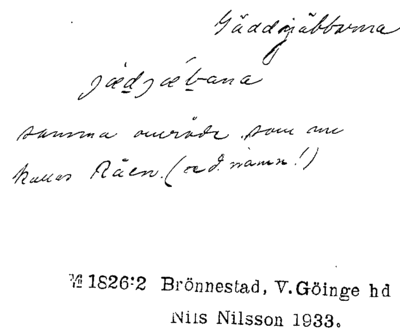 Gäddgäbbarna
jædjæbana
samma område som nu
kallas Råen. (od. namn!)
VII 1826:2 Brönnestad, V.Göinge hd
Nils Nilsson 1933.